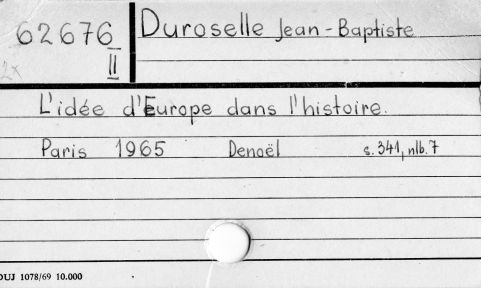 62676 Duroselle Jean-Baptiste
II
2x
L'idée d'Europe dans l'histoire.
Paris 1965 Denoël s. 341, nlb. 7
DUJ 1078/69 10.000